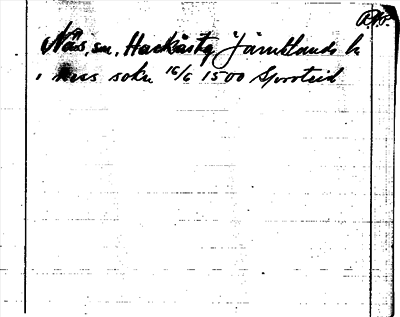 Näs, sn, Hackås tg Jämtlands l.
i Näs sokn 16/6 1500 Sproteid